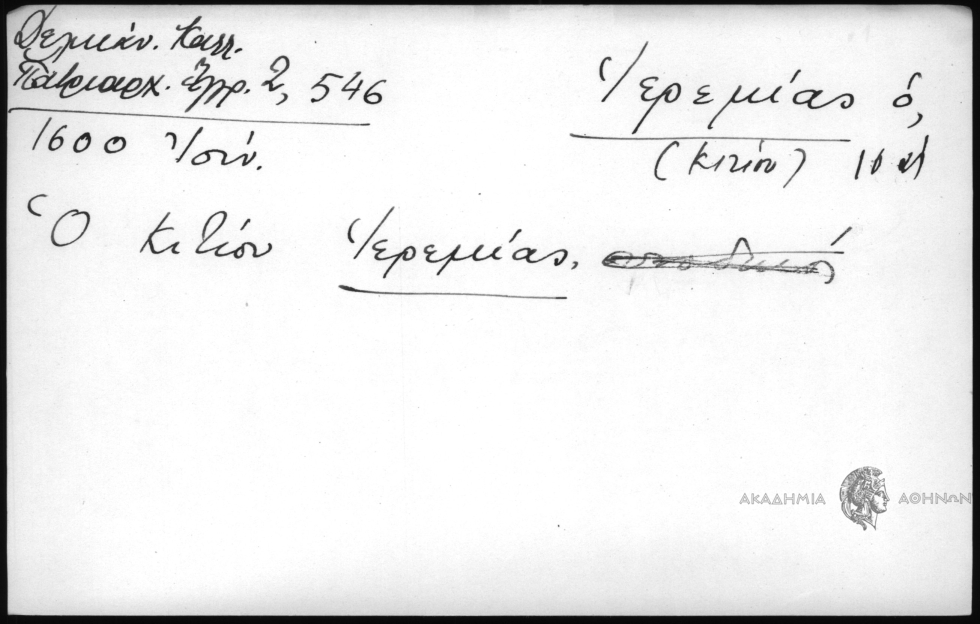 Δελικάν. Καλλ.
Πατριαρχ. Ἔγγρ. 2, 546
1600 Ἰούν.
Ἱερεμίας ὁ,
(Κιτίου)
Ὁ Κιτίου Ἱερεμίας,
ΑΚΑΔΗΜΙΑ ΑΘΗΝΩΝ